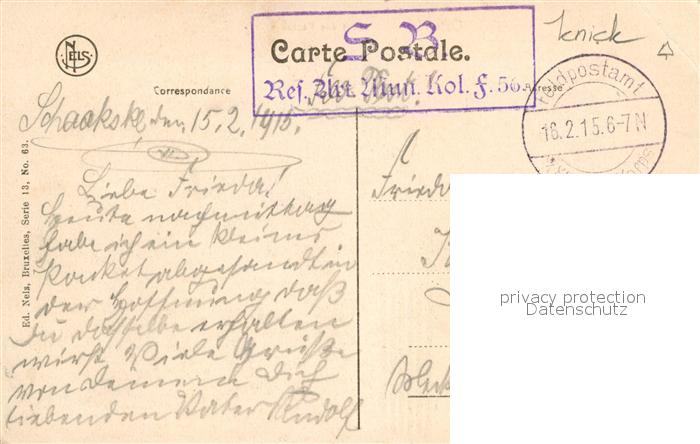 knick
S. B.
Carte Postale.
NELS
Correspondance
Adresse
Res. Abt. Mun. Kol. F. 56.
Feldpostamt
16.2.15.6-7N
den 15.2.1915.
Liebe Frieda!
Heute nachmittag
habe ich ein kleines
Packet abgesandt in
der Hoffnung daß
Du dasselbe erhalten
wirst. Viele Grüße
von Deinem Dich
liebenden Vater Rudolf
Frieda
Ed. Nels, Bruxelles, Serie 13, No. 63.
privacy protection
Datenschutz